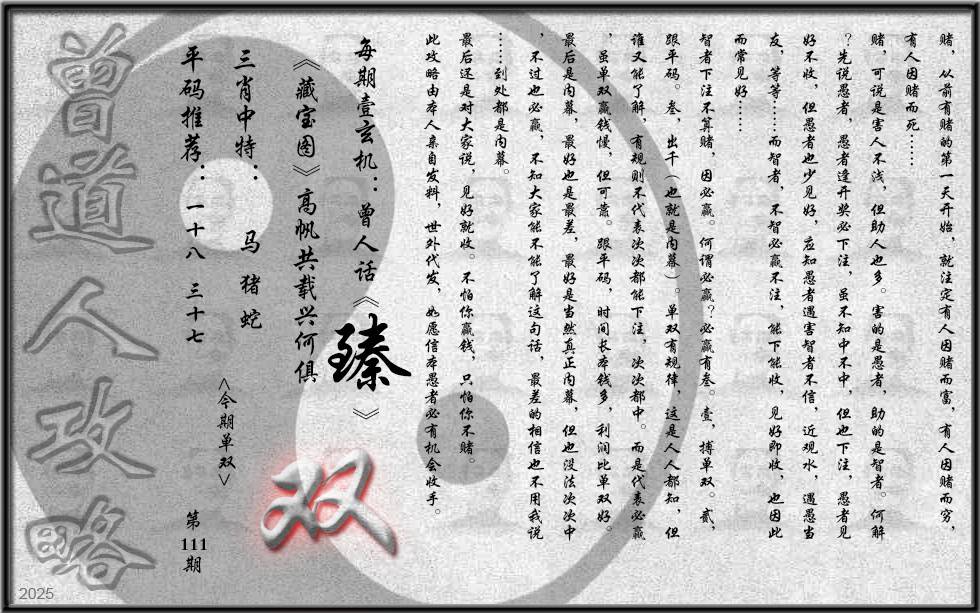 赌，从前有赌的第一天开始，就注定有人因赌而富，有人因赌而穷，
有人因赌而死……
赌，可说是害人不浅，但助人也多。害的是愚者，助的是智者。何解
？先说愚者，愚者逢开奖必下注，虽不知中不中，但也下注，愚者见
好不收，但愚者也少见好，应知愚者遇害智者不信，近观水，遇愚当
友，等等……而智者，不智必赢不注，能下能收，见好即收，也因此
而常见好……
智者下注不算赌，因必赢。何谓必赢？必赢有叁。壹，搏单双。贰，
跟平码。叁，出千（也就是内幕）。单双有规律，这是人人都知，但
谁又能了解，有规则不代表次次都能下注，次次都中。而是代表必赢
，虽单双赢钱慢，但可靠。跟平码，时间长本钱多，利润比单双好。
最后是内幕，最好也是最差，最好是当然真正内幕，但也没法次次中
，不过也必赢，不知大家能不能了解这句话，最差的相信也不用我说
……到处都是内幕。
最后还是对大家说，见好就收。不怕你赢钱，只怕你不赌。
此攻略由本人亲自发料，世外代发，如愿信本愚者必有机会收手。
每期壹玄机：曾人话《臻》
《藏宝图》高帆共载兴何俱
三肖中特：马 猪 蛇
平码推荐：一十八 三十七
<今期单双>
双
第
111
期
曾道人攻略
2025